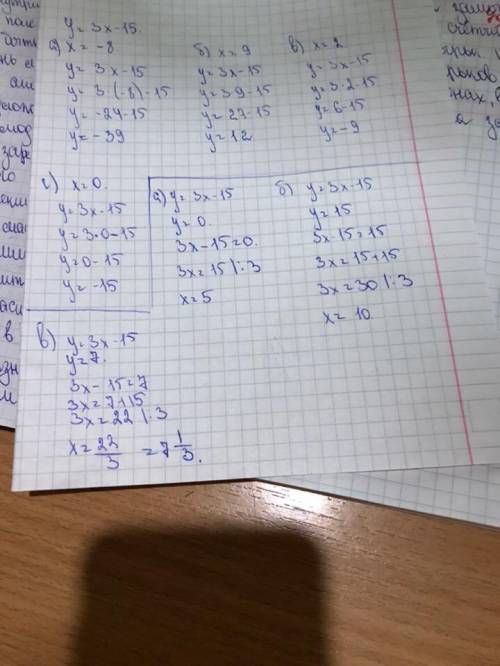 y = 3x - 15
а) x = -8
y = 3x - 15
y = 3 (-8) - 15
y = -24 - 15
y = -39
б) x = 9
y = 3x - 15
y = 3 9 - 15
y = 27 - 15
y = 12
в) x = 2
y = 3x - 15
y = 3 · 2 - 15
y = 6 - 15
y = -9
г) x = 0.
y = 3x - 15
y = 3 · 0 - 15
y = 0 - 15
y = -15
а) y = 3x - 15
y = 0.
3x - 15 = 0.
3x = 15 | : 3
x = 5
б) y = 3x - 15
y = 15
3x - 15 = 15
3x = 15 + 15
3x = 30 | : 3
x = 10
в) y = 3x - 15
y = 7.
3x - 15 = 7
3x = 7 + 15
3x = 22 | : 3
x = 22/3 = 7 1/3.